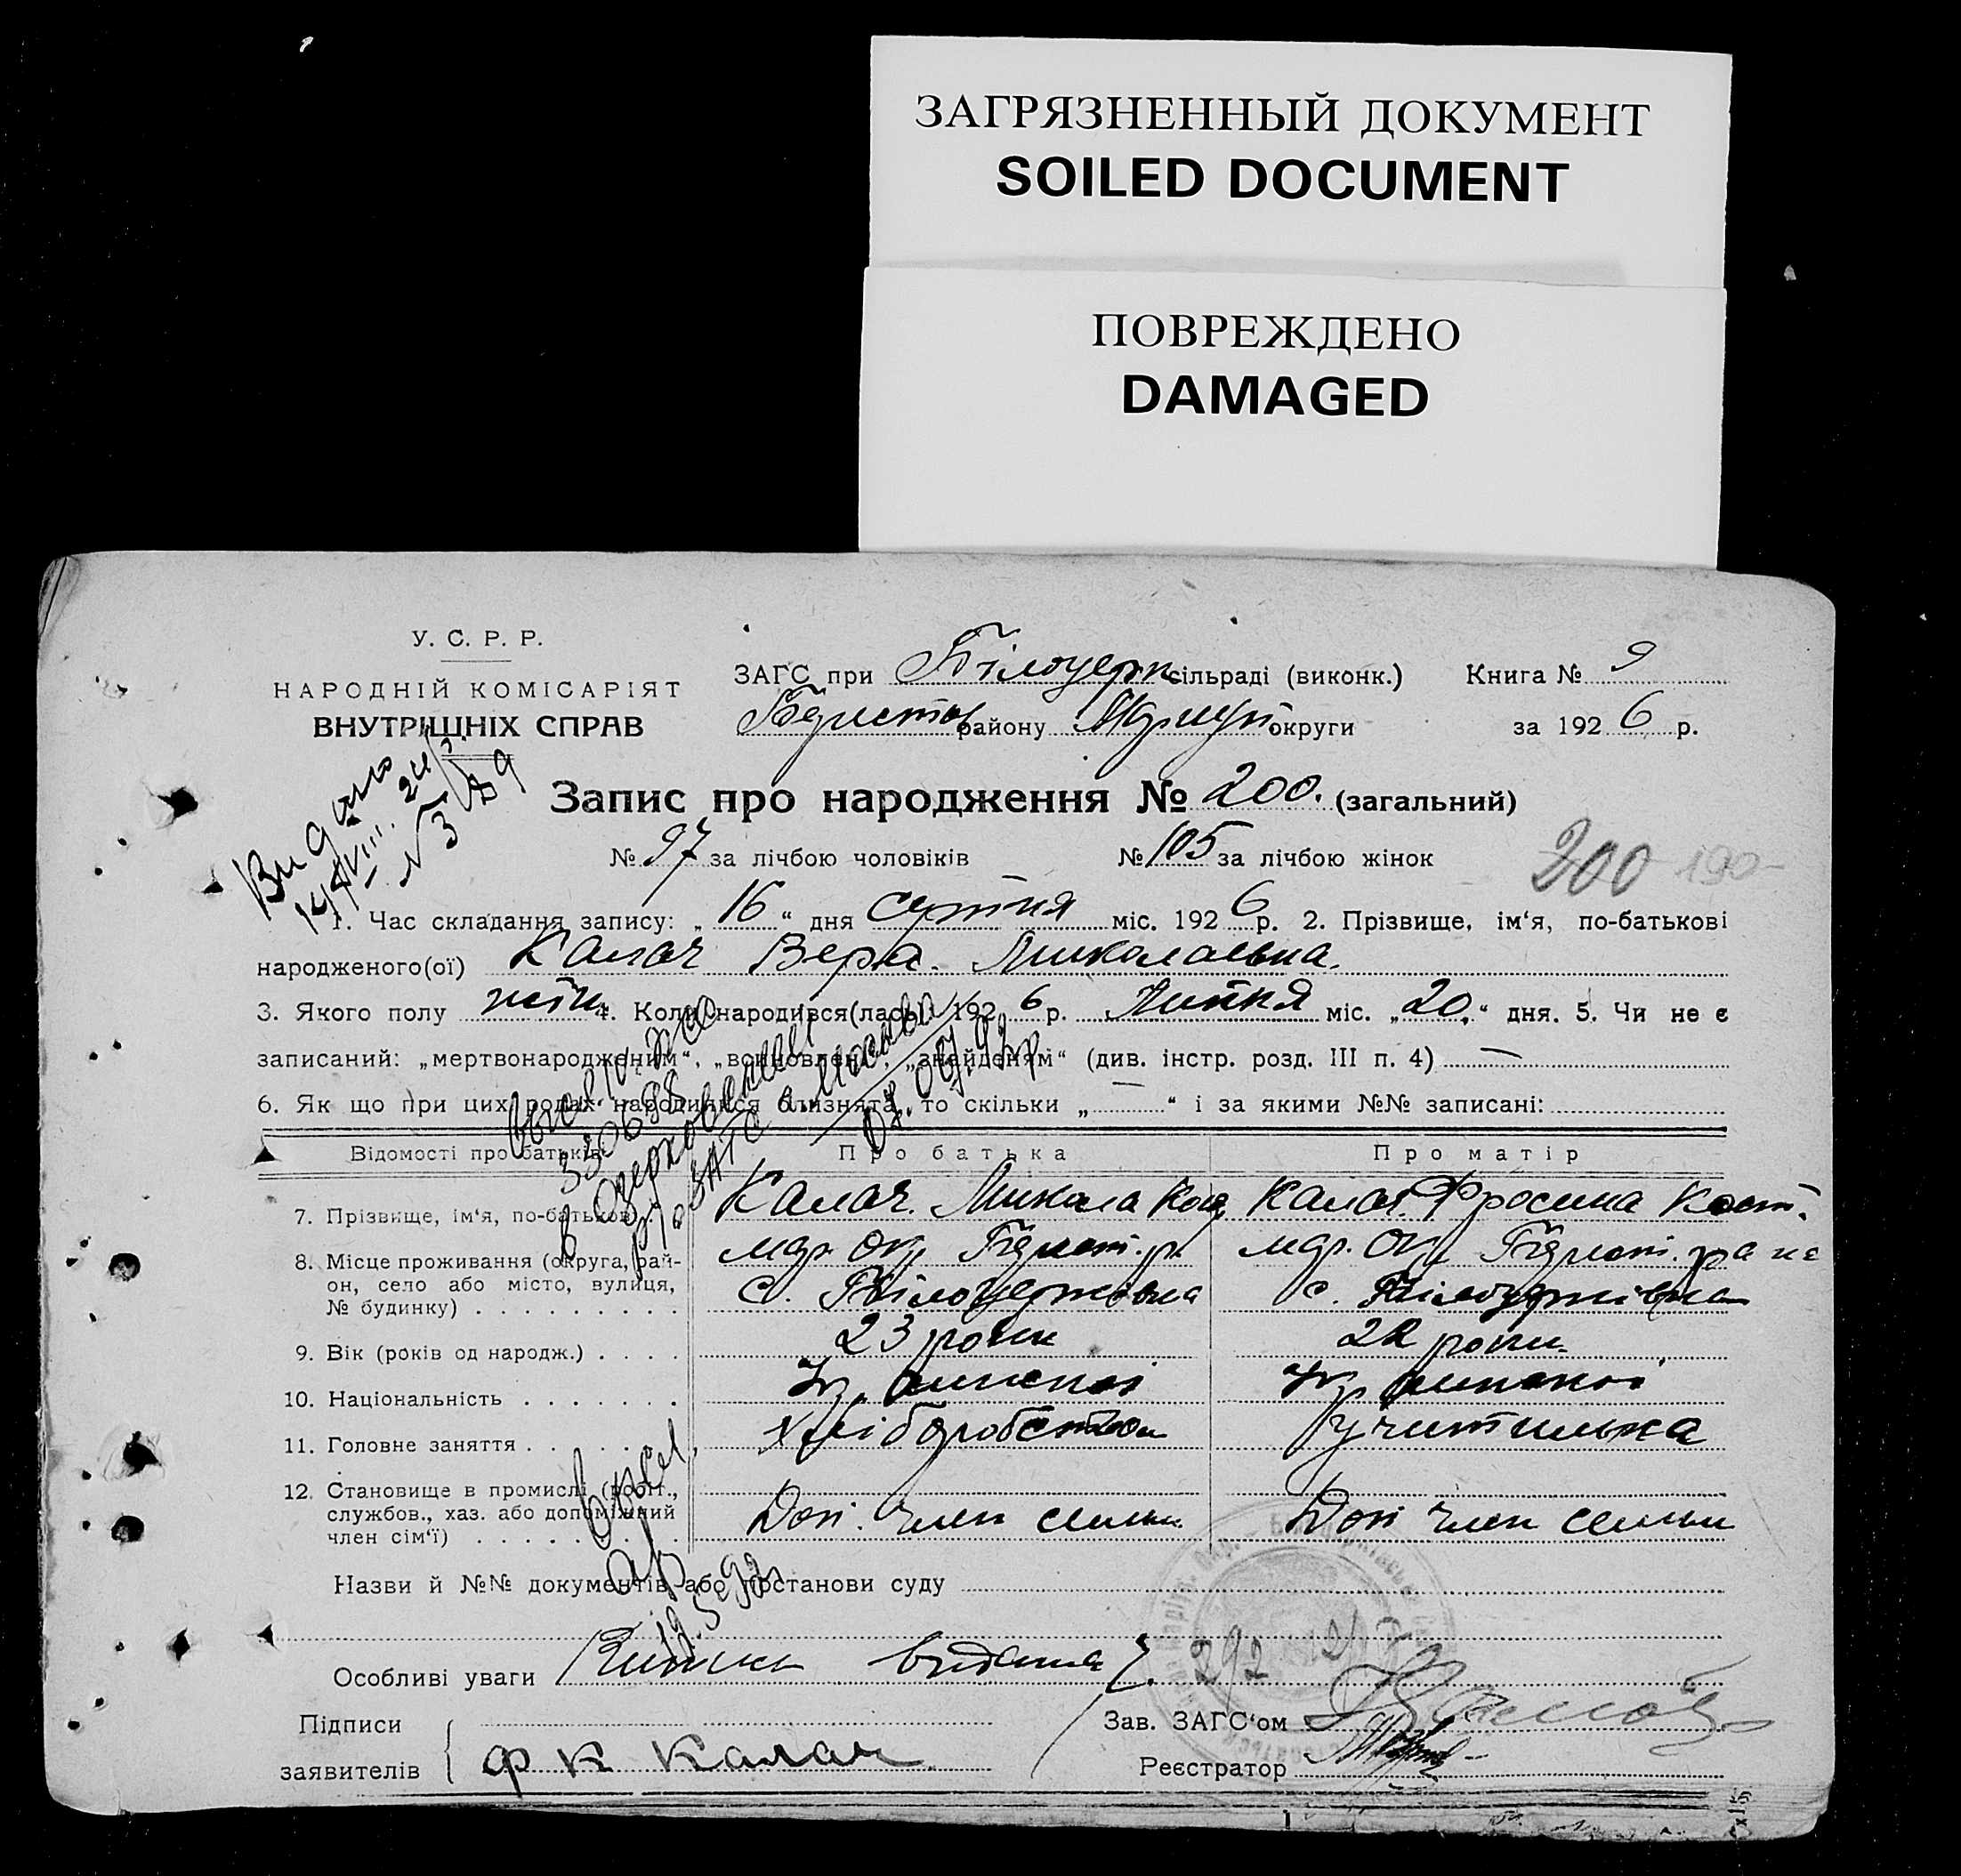 ЗАГРЯЗНЕННЫЙ ДОКУМЕНТ
SOILED DOCUMENT
ПОВРЕЖДЕНО
DAMAGED
У. С. Р. Р.
НАРОДНІЙ КОМІСАРІЯТ
ВНУТРІШНІХ СПРАВ
ЗАГС при Білоцерк сільраді (виконк.) Книга № 9
району округи за 1926 р.
Видано
Запис про народження № 200. (загальний)
№ 97 за лічбою чоловіків № 105 за лічбою жінок
200 190
1. Час складання запису: „16“ дня серпня міс. 1926 р. 2. Прізвище, ім‘я, по-батькові
народженого(ої) Калач Вера Миколаевна.
3. Якого полу жін. 4. Коли народився(лась) 1926 р. Липня міс. „20.“ дня. 5. Чи не є
записаний: „мертвонародженим“, „воиновлений“, „знайденям“ (див. інстр. розд. III п. 4) —
6. Як що при цих родах народилися близнята, то скільки „ — “ і за якими №№ записані:
Відомості про батьків Про батька Про матір
7. Прізвище, ім‘я, по-батькові . Калач. Микола Кос. Калач. Фросина Кост.
8. Місце проживання (округа, рай- мар. окр. р. мар. Окр. рана
он, село або місто, вулиця, с. Білоцерківка с. Білоцерківка
№ будинку) . . . . . . . . .
9. Вік (років од народж.) . . . . 23 роки 22 роки
10. Національність . . . . . . . Українські Українські
11. Головне заняття . . . . . . . хліборобство учителька
12. Становище в промислі (робіт.,
службов., хаз. або допоміжний Доп. член семьи Доп член семьи
член сім‘ї) . . . . . . . . .
Назви й №№ документів або постанови суду
Особливі уваги Виписка видана 292
Підписи Зав. ЗАГС‘ом
заявителів Ф К Калач Реєстратор